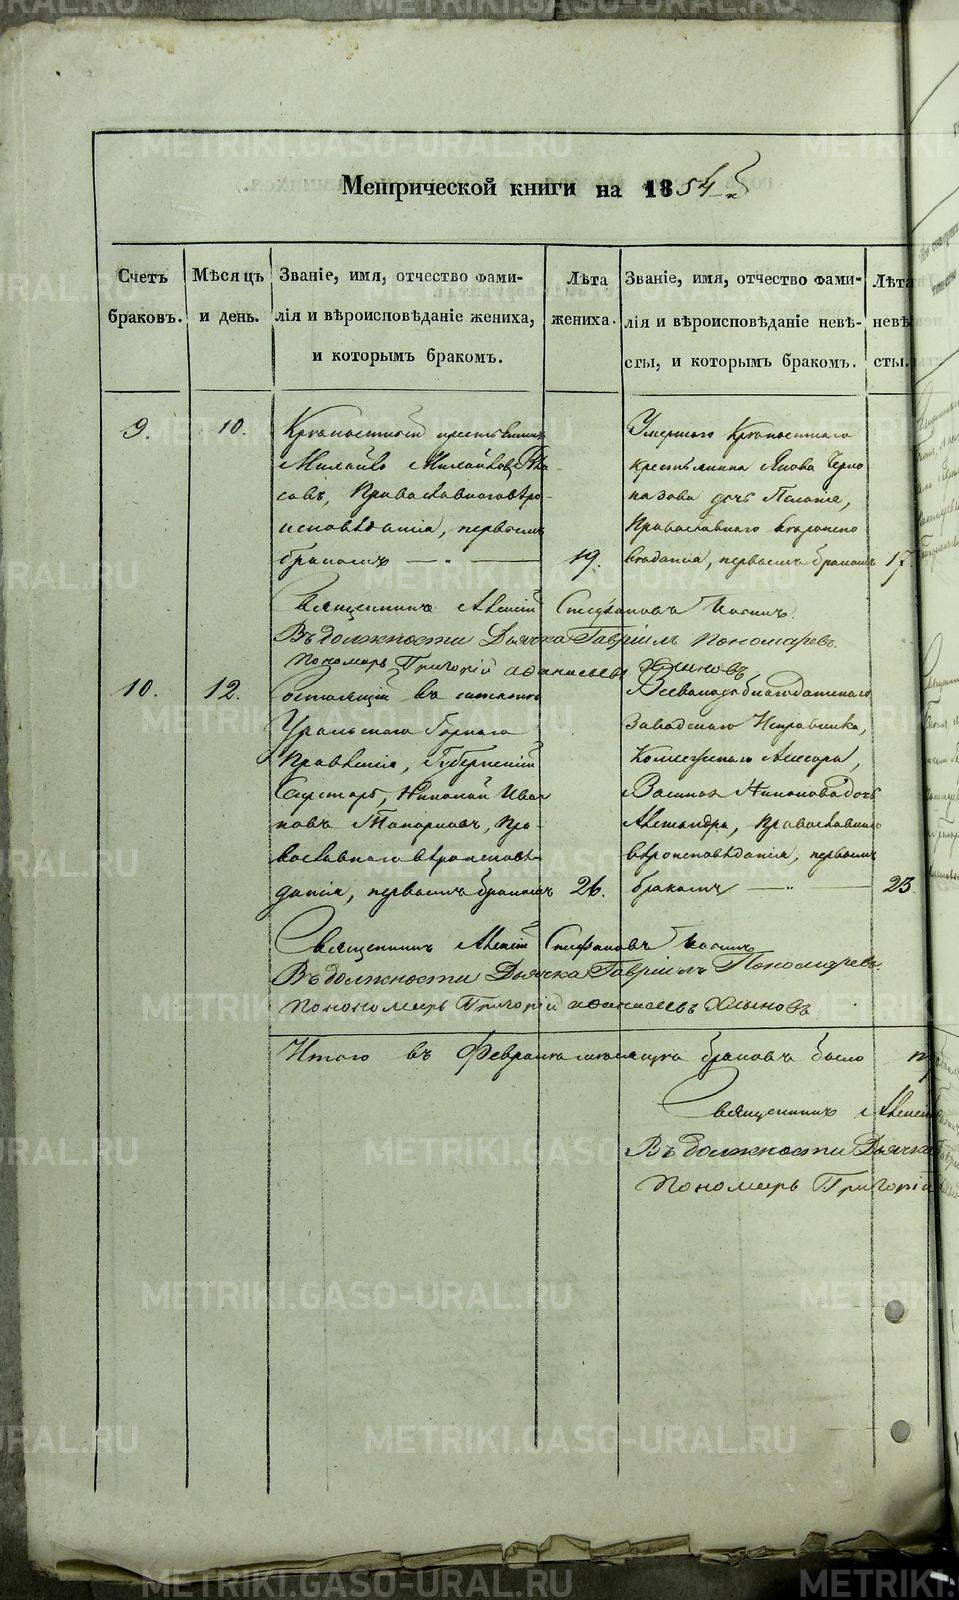 Метрической книги на 1854й
Счетъ браковъ.
Мѣсяцъ и день.
Званіе, имя, отчество фами-
лія и вѣроисповѣданіе жениха,
и которымъ бракомъ.
Лѣта жениха.
Званіе, имя, отчество фами-
лія и вѣроисповѣданіе невѣ-
сты, и которымъ бракомъ.
Лѣта невѣ
сты.
9.
10.
Крѣпостный крестьянинъ
Михайло Михайловъ
совъ, Православнаго вѣро-
исповѣданія, первымъ
бракомъ
19.
Умершаго Крѣпостнаго
крестьянина Якова Черно
пазова дочь Пелагія,
Православнаго вѣроиспо
вѣданія, первымъ бракомъ
17.
Священникъ Алексій Стефановъ
Въ должности Дьячка Гавріилъ Пономаревъ.
Пономарь Григорій Афанасьевъ Хлыновъ
10.
12.
Состоящій въ
Уральскаго Горнаго
Правленія, Губернскій
Секретарь, Николай Ива
новъ Топорковъ, Пра-
вославнаго вѣроисповѣ-
данія, первымъ бракомъ
26.
Всеволодоблагодатскаго
Заводскаго Исправника,
Коллежскаго Асессора,
Василья дочь
Александра, Православнаго
вѣроисповѣданія, первымъ
бракомъ
23.
Священникъ Алексій Стефановъ
Въ должности Дьячка Гавріилъ Пономаревъ.
Пономарь Григорій Афанасьевъ Хлыновъ
Итого въ Февралѣ мѣсяцѣ браковъ было
Священникъ Алексі
Въ должности Дьячка
Пономарь Григорій
METRIKI.GASO-URAL.RU